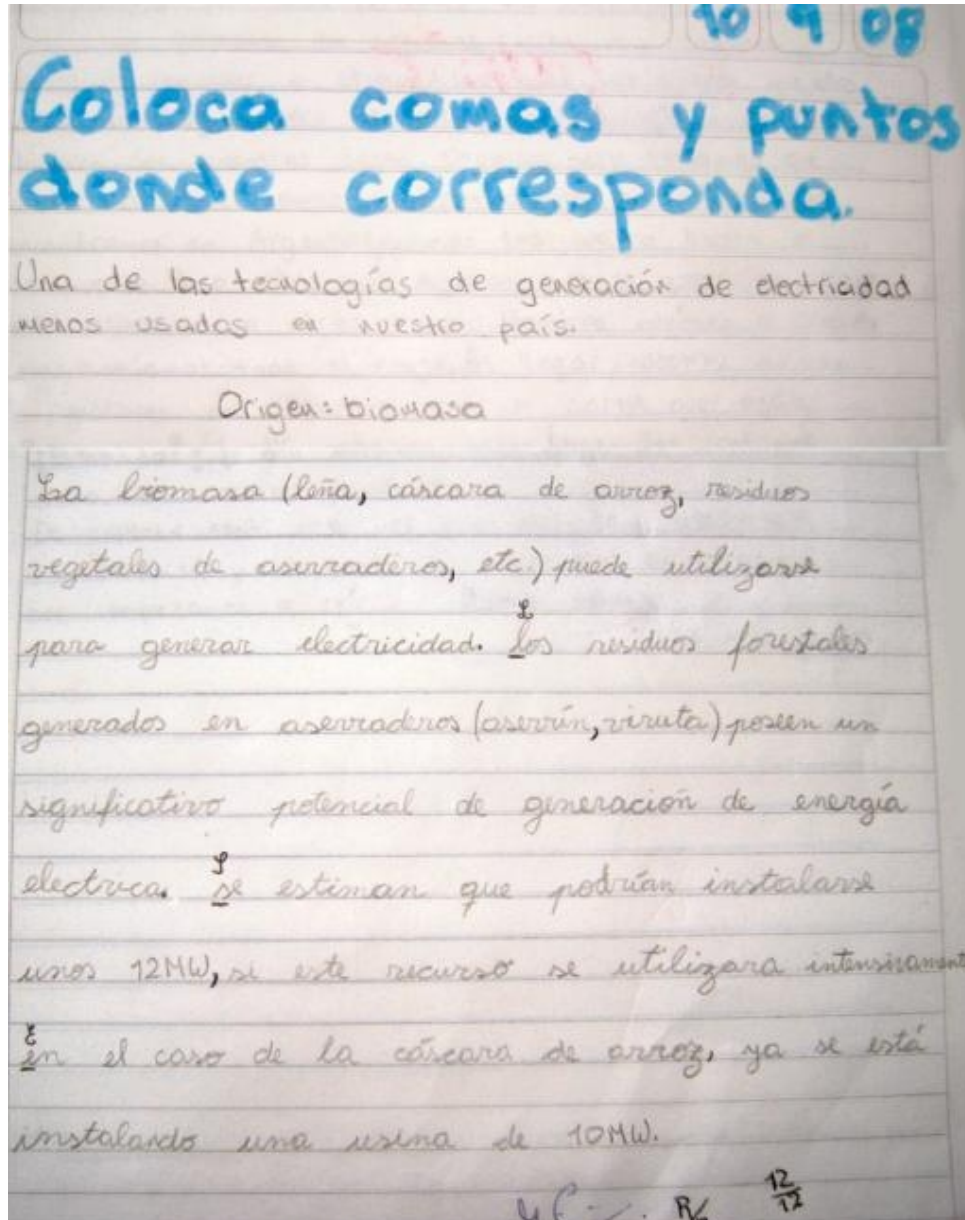 10 9 08
Coloca comas y puntos
donde corresponda.
Una de las tecnologías de generación de electricidad
menos usadas en nuestro país.
Origen: biomasa
La biomasa (leña, cáscara de arroz, residuos
vegetales de aserraderos, etc.) puede utilizarse
para generar electricidad. Los residuos forestales
generados en aserraderos (aserrín, viruta) poseen un
significativo potencial de generación de energía
electrica. Se estiman que podrían instalarse
unos 12MW, si este recurso se utilizara intensivament
En el caso de la cáscara de arroz, ya se está
instalando una usina de 10MW.
R/ 12/12